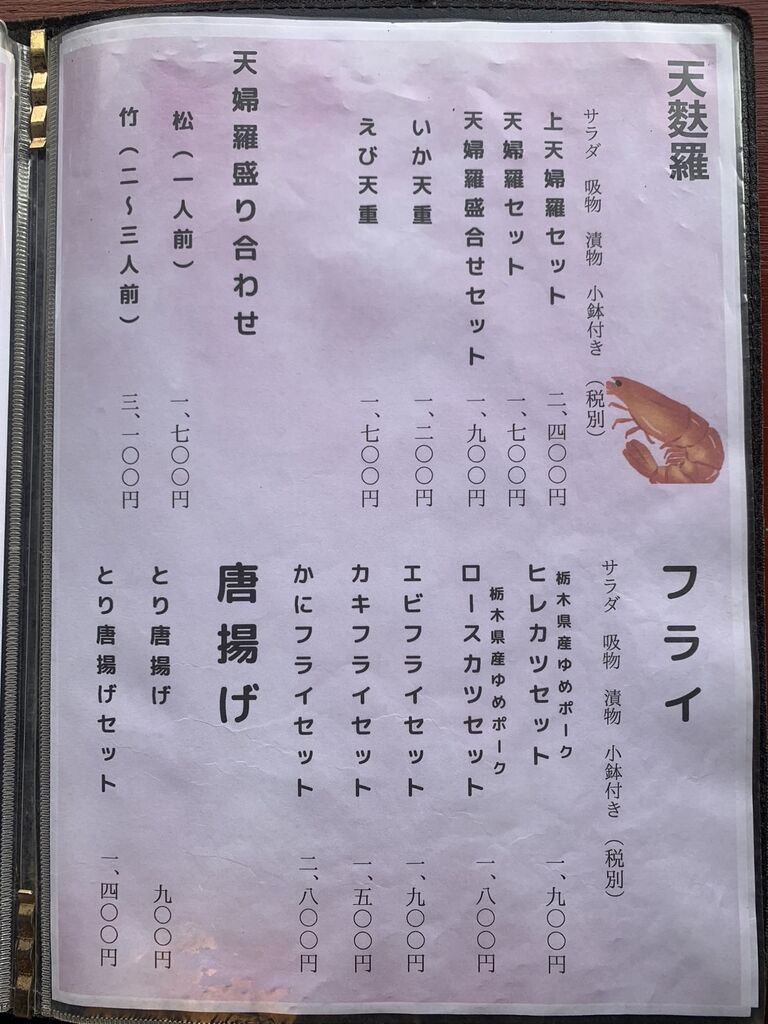 天麩羅
サラダ 吸物 漬物 小鉢付き（税別）
上天婦羅セット 二、四〇〇円
天婦羅セット 一、七〇〇円
天婦羅盛合せセット 一、九〇〇円
いか天重 一、二〇〇円
えび天重 一、七〇〇円
天婦羅盛り合わせ
松（一人前） 一、七〇〇円
竹（二～三人前） 三、一〇〇円
フライ
サラダ 吸物 漬物 小鉢付き（税別）
栃木県産ゆめポーク
ヒレカツセット 一、九〇〇円
栃木県産ゆめポーク
ロースカツセット 一、八〇〇円
エビフライセット 一、九〇〇円
カキフライセット 一、五〇〇円
かにフライセット 二、八〇〇円
唐揚げ
とり唐揚げ 九〇〇円
とり唐揚げセット 一、四〇〇円